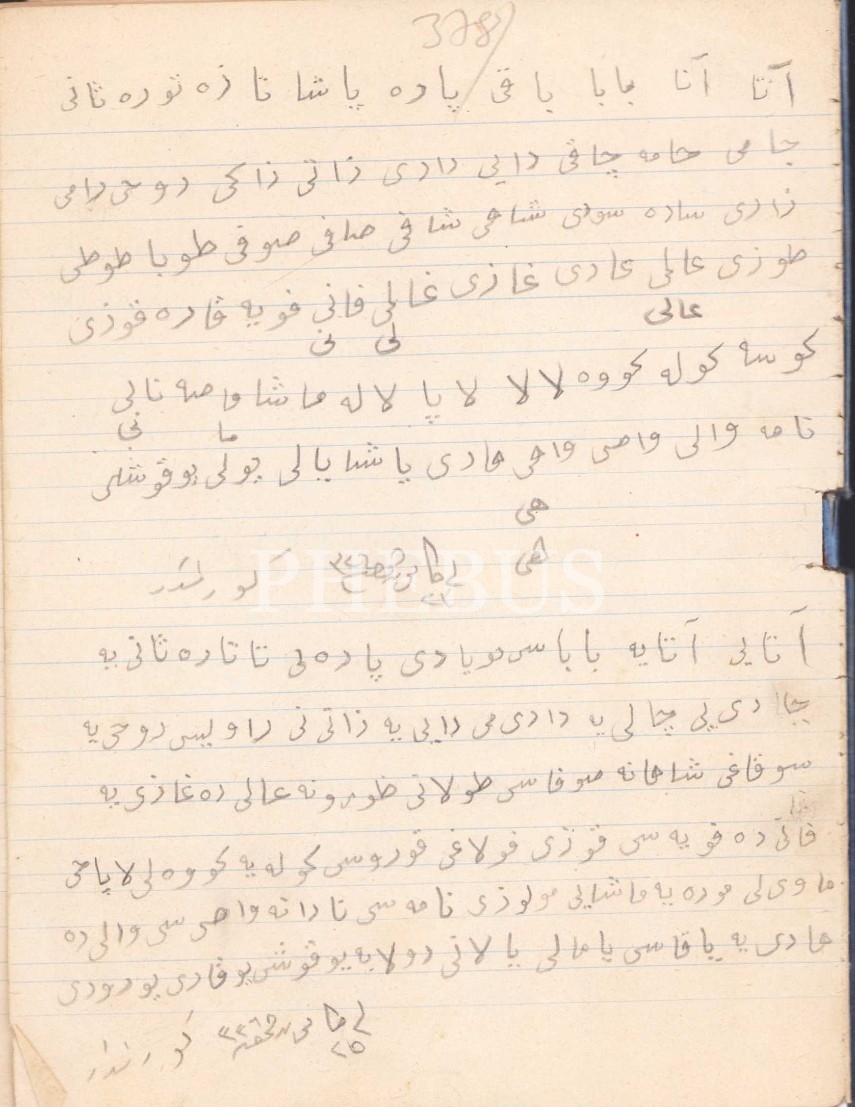 378
آتا آنا بابا باقی پاره پاشا تازه توره ثانی
جامی جامه چاقی دایی دادی ذاتی ذاکی روحی رامی
زاری ساده سودی شاهی شافی صافی صوفی طوبا طوطی
طوزی عالی عادی غازی غالی فانی فویه قاره قوزی
عالی
لی نی
کوسه کوله کووه لالا لاپا لاله ماشا ماصه نالی
ما نی
نامه والی واصی واحی هادی پاشا یالی یولی یوقوشلی
هی
هی
PHEBUS
آتایی آتایه باباسی بویادی پاره لی تاتاره ثانی یه
جادی یی چالی یه دادی می دایی یه ذاتی نی راویسی روحی یه
سوقاغی شاهانه صوفاسی طولانی ظورونه عالی ده غازی یه
فانی ده قویه سی قوزی قولاغی قوروسی کوله یه کووه لی لاپاجی
ماوی لی موره یه ماشایی مولوزی نامه سی نادانه واصی سی والی ده
هادی یه یاقاسی یامالی یالانی دولابه یوقوشی یوقاری یورودی